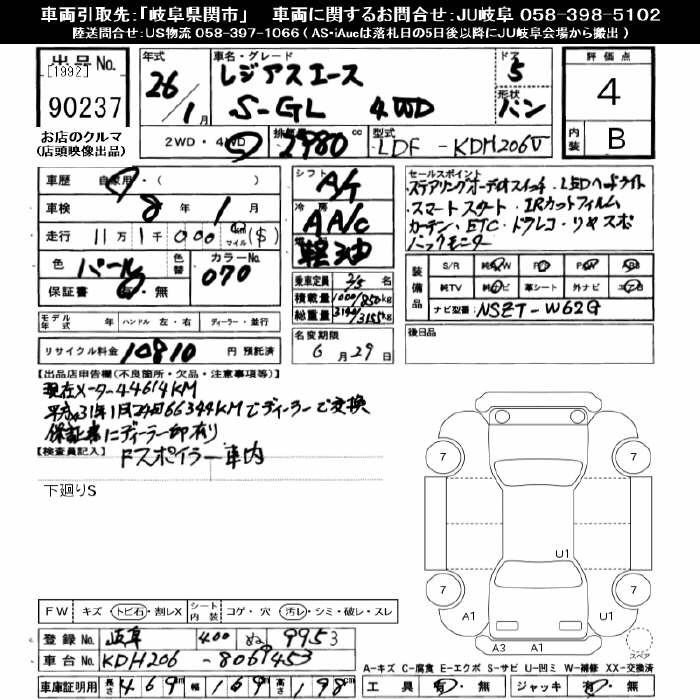 車両引取先:「岐阜県関市」　車両に関するお問合せ:JU岐阜 058-398-5102
陸送問合せ:US物流 058-397-1066 ( AS･iAucは落札日の5日後以降にJU岐阜会場から搬出 )
出品No.
[1992]
90237
お店のクルマ
(店頭映像出品)
年式 26/1月
車名・グレード レジアスエース
S-GL 4WD
ドア 5
形状 バン
2WD・4WD
排気量 2980 cc
型式 LDF-KDH206V
評価点 4
内装 B
車歴 自家用・( )
車検 8年1月
走行 11万1千000 km マイル ($)
色 パール 色替 カラーNo. 070
保証書 有・無
シフト A/T
冷房 AA/c
軽油
乗車定員 2/5名
積載量 1000/850kg
総重量 3155kg
セールスポイント
・ステアリングオーディオスイッチ ・LEDヘッドライト
・スマートスタート ・IRカットフィルム
カーテン・ETC・ドラレコ・リヤスポ
バックモニター
装備品 S/R 純AW P/S P/W AB
純TV 純ナビ 革シート 外ナビ エアB
ナビ型番 NSZT-W62G
モデル年式 年 ハンドル 左・右 ディーラー・並行
名変期限 6月29日
後日品
リサイクル料金 10810 円 預託済
【出品店申告欄(不良箇所・欠品・注意事項等)】
現在メーター44614KM
平成31年1月24日66344KMでディーラーで交換
保証書にディーラー印有り
【検査員記入】 Fスポイラー車内
下廻りS
7
7
7
7
U1
A1
U1
A3
A1
スペア
FW キズ・トビ石・割レX シート内装 コゲ・穴 汚レ・シミ・破レ・スレ
登録No. 岐阜 400 ぬ 9953
車台No. KDH206-8061453
車庫証明用 長さ 469m 幅 169m 高さ 198cm
A-キズ C-腐食 E-エクボ S-サビ U-凹ミ W-補修 XX-交換済
工具 有・無 ジャッキ 有・無